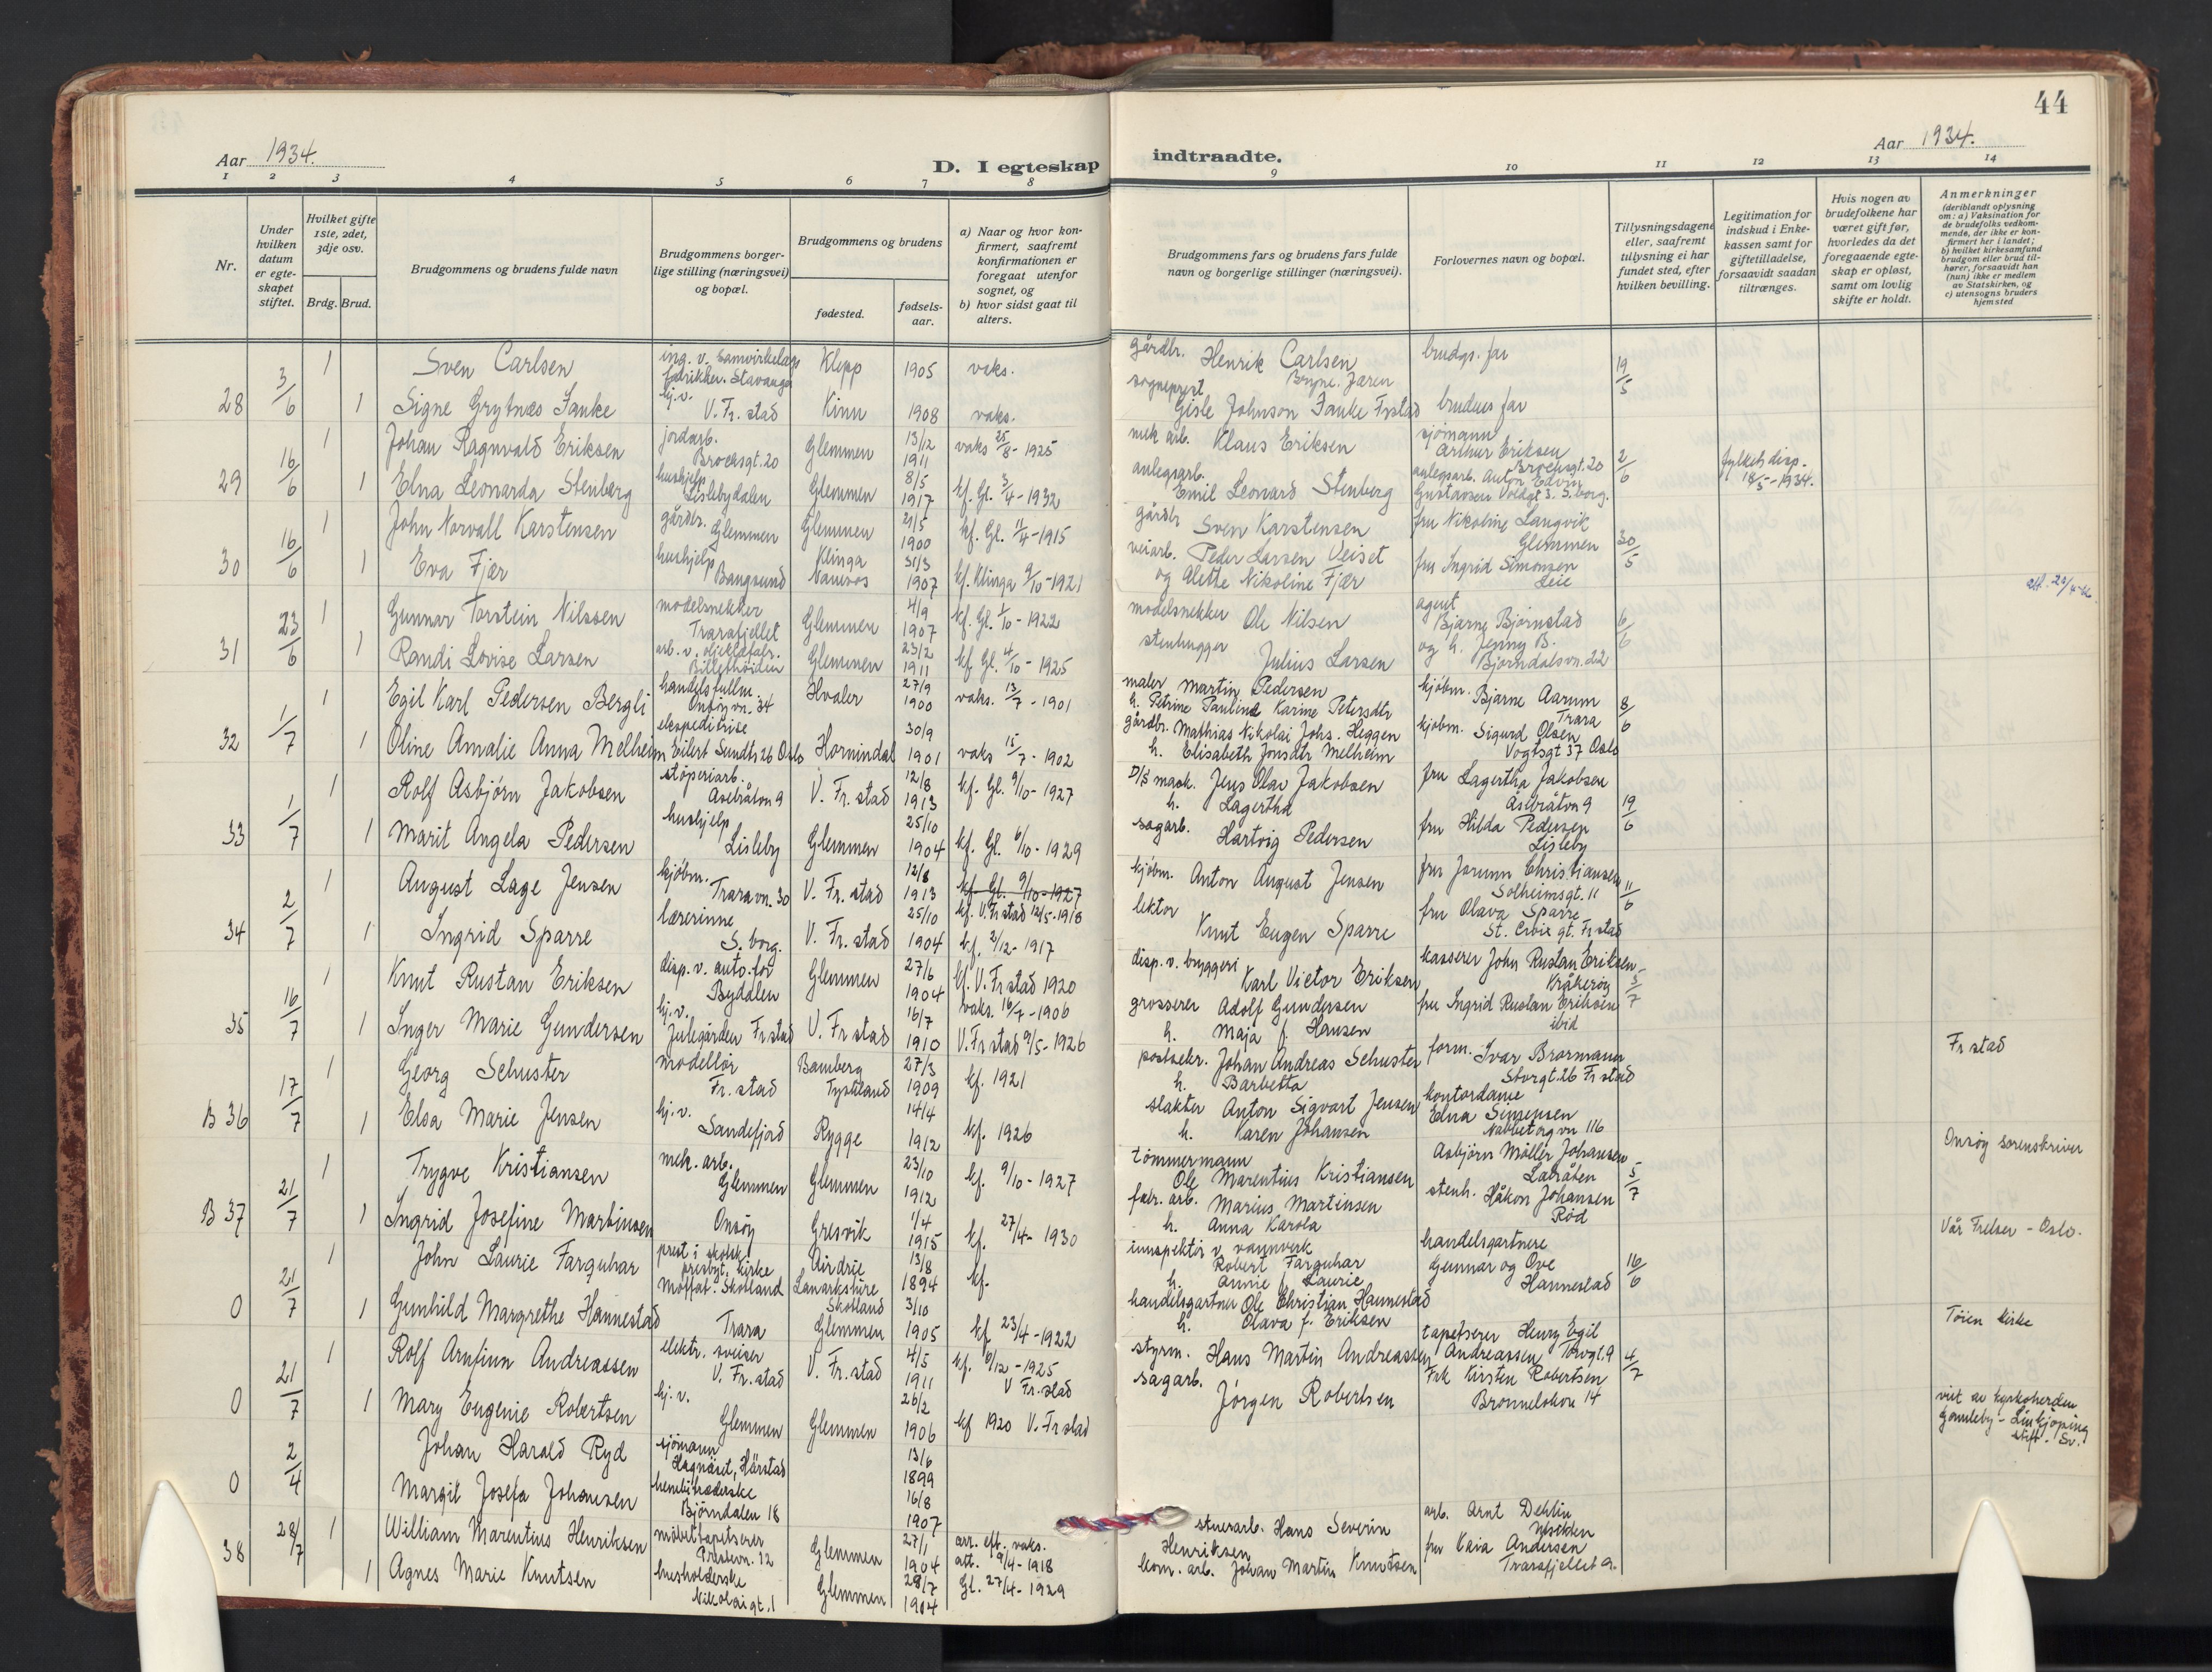 44
Aar 1934.
D. I egteskap indtraadte.
Aar 1934.
1 2 3 4 5 6 7 8 9 10 11 12 13 14
Nr.
Under hvilken datum er egteskapet stiftet.
Hvilket gifte 1ste, 2det, 3dje osv.
Brdg. Brud.
Brudgommens og brudens fulde navn
Brudgommens borgerlige stilling (næringsvei) og bopæl.
Brudgommens og brudens
fødested.
fødselsaar.
a) Naar og hvor konfirmert, saafremt konfirmationen er foregaat utenfor sognet, og
b) hvor sidst gaat til alters.
Brudgommens fars og brudens fars fulde navn og borgerlige stillinger (næringsvei).
Forlovernes navn og bopæl.
Tillysningsdagene eller, saafremt tillysning ei har fundet sted, efter hvilken bevilling.
Legitimation for indskud i Enkekassen samt for giftetilladelse, forsaavidt saadan tiltrænges.
Hvis nogen av brudefolkene har været gift før, hvorledes da det foregaaende egteskap er opløst, samt om lovlig skifte er holdt.
Anmerkninger
(deriblandt oplysning om: a) Vaksination for de brudefolks vedkommende, der ikke er konfirmert her i landet; b) hvilket kirkesamfund brudgom eller brud tilhører, forsaavidt han (hun) ikke er medlem av Statskirken, og c) utensogns bruders hjemsted
28 3/6 1 Sven Carlsen Stavanger Klepp 1905 vaks. gårdbr. Henrik Carlsen Bryne. Jæren brudgs. far 19/5
1 Signe Grytnæs Janke hj.v. V. Fr. stad Kinn 1908 vaks. sogneprest Gisle Johnson Janke Frstad brudens far
29 16/6 1 Johan Ragnvald Eriksen jordarb. Brochsgt. 20 Glemmen 13/12 1911 vaks 25/8-1925 mek arb. Klaus Eriksen sjömann Arthur Eriksen Brochsgt. 20 2/6 fylkets disp. 18/5-1934.
1 Elna Leonarda Stenberg hushjelp Lislebydalen Glemmen 8/5 1917 kf. Gl. 3/4-1932 anlegsarb. Emil Leonard Stenberg anlegsarb. Anton Edvin Gustavsen Voldgt 3. S.borg.
30 16/6 1 John Norvall Karstensen gårdbr. Glemmen Glemmen 21/5 1900 kf. Gl. 11/4-1915 gårdbr Sven Karstensen fru Nikoline Langvik Glemmen 30/5
1 Eva Fjær hushjelp Bangsund Klinga Namsos 31/3 1907 kf. Klinga 9/10-1921 veiarb. Peder Larsen Veiset og Alette Nikoline Fjær fru Ingrid Simonsen Leie
31 23/6 1 Gunnar Torstein Nilssen modelsnekker Trarafjellet Glemmen 4/9 1907 kf. Gl. 1/10-1922 modelsnekker Ole Nilsen agent Bjarne Bjørnstad 6/6
1 Randi Lovise Larsen Glemmen 23/2 1911 kf. Gl. 4/10-1925 stenhugger Julius Larsen og h. Jenny B. Bjørndalsvn. 22
32 1/7 1 Egil Karl Pedersen Bergli handelsfullm. Onsøyvn. 34 Hvaler 27/9 1900 vaks. 13/7-1901 maler Martin Pedersen h. Petrine Pauline Karine Petersdtr kjøbm. Bjarne Aarum Trara 8/6
1 Oline Amalie Anna Melheim ekspeditrise Eilert Sundts 26 Oslo Hornindal 30/9 1901 vaks 15/7-1902 gårdbr. Mathias Nikolai Johs. Heggen h. Elisabeth Jonsdtr Melheim kjøbm. Sigurd Olsen Vogtsgt 37 Oslo
33 1/7 1 Rolf Asbjørn Jakobsen støperiarb. V. Fr. stad 12/8 1913 kf. Gl. 9/10-1927 D/S mask. Jens Olav Jakobsen h. Lagertha fru Lagertha Jakobsen 19/6
1 Marit Angela Pedersen hushjelp Lisleby Glemmen 25/10 1904 kf. Gl. 6/10-1929 sagarb. Hartvig Pedersen fru Hilda Pedersen Lisleby
34 2/7 1 August Lage Jensen kjøbm. Traravn. 30 V. Fr. stad 12/8 1913 kf. Gl. 9/10-1927 kf. V. Fr stad 12/5-1918 kjøbm. Anton August Jensen fru Jorunn Christiansen Solheimsgt. 11 11/6
1 Ingrid Sparre lærerinne S. borg. V. Fr. stad 25/10 1904 kf. 2/12-1917 lektor Knut Eugen Sparre fru Olava Sparre St. Croix gt. Fr stad
35 16/7 1 Knut Rustan Eriksen disp. v. auto. for Bydalen Glemmen 27/6 1904 kf. V. Fr stad 1920 disp. v. bryggeri Karl Victor Eriksen kasserer John Rustan Eriksen Kråkerøy 3/7
1 Inger Marie Gundersen hj.v. Julegården Fr stad V. Fr stad 16/7 1910 vaks. 16/7-1906 V. Fr stad 9/5-1926 grosserer Adolf Gundersen h. Maja f. Hansen fru Ingrid Rustan Eriksen ibid
B 36 17/7 1 Georg Schuster modellør Fr. stad Bamberg Tyskland 27/3 1909 kf. 1921 postsekr. Johan Andreas Schuster h. Barbetta form. Ivar Brormann Storgt. 26 Fr stad Fr stad
1 Elsa Marie Jensen hj.v. Sandefjord Rygge 14/4 1912 kf. 1926 slakter Anton Sigvart Jensen h. Karen Johansen kontordame Elna Simensen Nabbetorgvn 116
B 37 21/7 1 Trygve Kristiansen mek. arb. Glemmen Glemmen 23/10 1912 kf. 9/10-1927 tömmermann Ole Marentius Kristiansen Asbjørn Møller Johansen Labråten 5/7 Onsøy sorenskriver
1 Ingrid Josefine Martinsen Onsøy Gresvik 1/4 1915 kf. 27/4-1930 fabr. arb. Marius Martinsen h. Anna Karola stenh. Håkon Johansen Rød
0 21/7 1 John Laurie Farquhar prest i skotsk presbyt. kirke Moffat. Skotland Airdrie Lanarkshire Skotland 13/8 1894 kf. innspektör v. vannverk Robert Farquhar h. Annie f. Laurie handelsgartnere Gunnar og Ove Hannestad 16/6 Vår Frelser - Oslo.
1 Gunhild Margrethe Hannestad Trara Glemmen 3/10 1905 kf 23/4-1922 handelsgartner Ole Christian Hannestad h. Olava f. Eriksen
0 21/7 1 Rolf Arnfinn Andreassen elektr. sveiser V. Fr. stad V. Fr. stad 4/5 1911 kf. 6/12-1925 V Fr. stad styrm. Hans Martin Andreassen tapetserer Henry Egil Andreassen Torvgt. 9 4/7 Tøien kirke
1 Mary Eugenie Robertsen hj.v. Glemmen Glemmen 26/2 1906 kf 1920 V. Fr stad sagarb. Jørgen Robertsen Frk Kirsten Robertsen 14
0 2/4 Johan Harald Ryd sjömann 13/6 1899 av kyrkoherden Gamleby - Linkjøping stift. Sv.
Margit Josefa Johansen Bjørndalen 18 16/8 1907
38 28/7 1 William Marentius Henriksen møbeltapetserer Prestevn. 12 Glemmen 27/1 1904 att. 9/4-1918 stuerarb. Hans Severin Henriksen arb. Arnt Dehlin
1 Agnes Marie Knutsen husholderske Nikolaigt. 1 Glemmen 28/7 1904 Gl. 27/4-1929 kom. arb. Johan Martin Knutsen fru Kaia Andersen Trarafjellet 9.